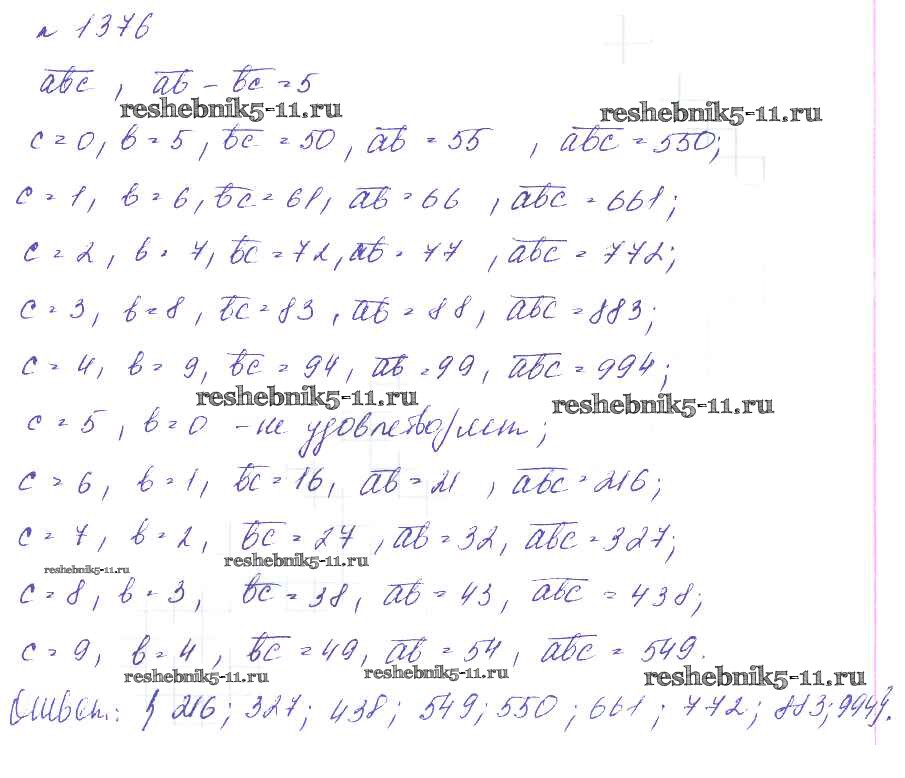 № 1376
abc, ab - bc = 5
reshebnik5-11.ru reshebnik5-11.ru
c = 0, b = 5, bc = 50, ab = 55, abc = 550;
c = 1, b = 6, bc = 61, ab = 66, abc = 661;
c = 2, b = 7, bc = 72, ab = 77, abc = 772;
c = 3, b = 8, bc = 83, ab = 88, abc = 883;
c = 4, b = 9, bc = 94, ab = 99, abc = 994;
reshebnik5-11.ru reshebnik5-11.ru
c = 5, b = 0 - не удовлетворяет;
c = 6, b = 1, bc = 16, ab = 21, abc = 216;
c = 7, b = 2, bc = 27, ab = 32, abc = 327;
reshebnik5-11.ru reshebnik5-11.ru
c = 8, b = 3, bc = 38, ab = 43, abc = 438;
c = 9, b = 4, bc = 49, ab = 54, abc = 549.
reshebnik5-11.ru reshebnik5-11.ru reshebnik5-11.ru
Ответ: { 216; 327; 438; 549; 550; 661; 772; 883; 994}.